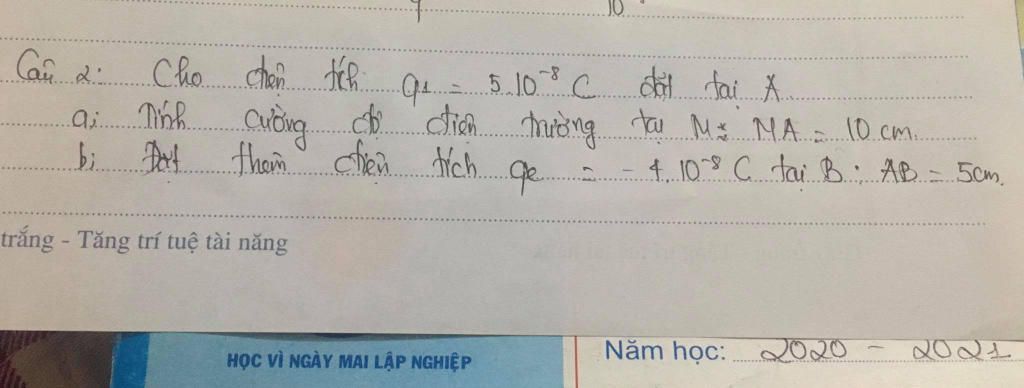 10
Câu 2: Cho điện tích q1 = 5.10⁻⁸ C đặt tại A
a; Tính cường độ điện trường tại M: MA = 10 cm.
b; Đặt thêm điện tích q2 = - 4.10⁻⁸ C tại B; AB = 5cm.
trắng - Tăng trí tuệ tài năng
HỌC VÌ NGÀY MAI LẬP NGHIỆP
Năm học: 2020 - 2021